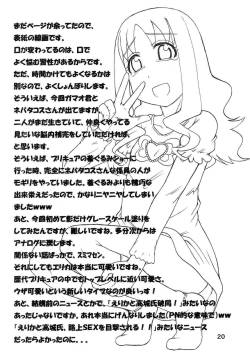 まだページが余ってたので、
表紙の線画です。
口が変わってるのは、口で
よく悩む習性があるからです。
ただ、時間かけてもよくなるかは
別なので、よくしょんぼりします。
そういえば、今回ガマオ君と
ネバタコスさんが出てますが、
二人がまだ生きていて、仲良くやってる
見たいな脳内補完をしていただければ、
と思います。
そういえば、プリキュアの着ぐるみショーに
行った時、完全にネバタコスさんな係員の人が
モギリをやっていました。着ぐるみよりも精巧な
出来栄えだったので、かなりニヤニヤしてしまい
ましたwww
あと、今回初めて影だけグレースケール塗りを
してみたんですが、難しいですね。多分次からは
アナログに戻します。
関係ない話ばっかで、スミマセン。
それにしてもエリカは本当に可愛いですね。
歴代プリキュアの中でもトップレベルに近い可愛さ。
ウザ可愛いという新しいタイプなのが良いっす！
あと、結構前のニュースとかで、「えりかと高城氏破局！」みたいなの
あったじゃないですか。あれ本当に何げしないました（PN的な意味で）ww
「えりかと高城氏、路上SEXを目撃される！！」みたいなニュース
だったらよかったのに．．．
20